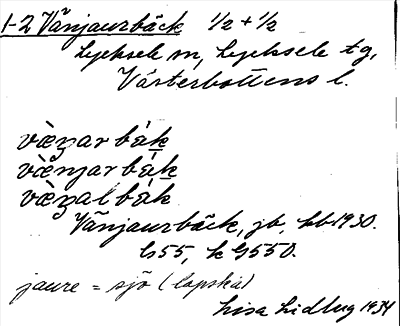 1-2 Vänjaurbäck 1/2 + 1/2
Lycksele sn, Lycksele tg,
Västerbottens l.
bák
bák
bák
Vänjaurbäck, jb, kb 1930.
ls 55, k 550.
jaure = sjö (lapska)
Lisa Lidberg 1934